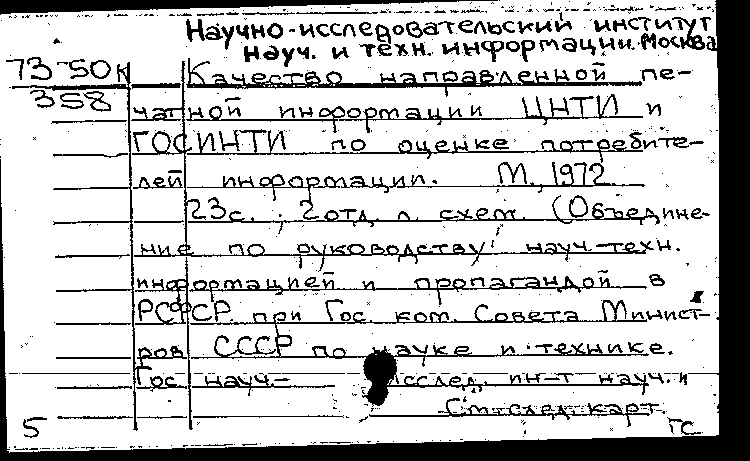 Научно-исследовательский институт
науч. и техн. информации. Москва
73-50к Качество направленной пе-
358 чатной информации ЦНТИ и
ГОСИНТИ по оценке потребите-
лей информации. М., 1972
23с.; 2 отд. л. схем. (Объедине-
ние по руководству науч-техн.
информацией и пропагандой в
РСФСР при Гос. ком. Совета Минист-
ров СССР по науке и технике.
Гос науч.- исслед. ин-т науч. и
См. след. карт.
5 ГС